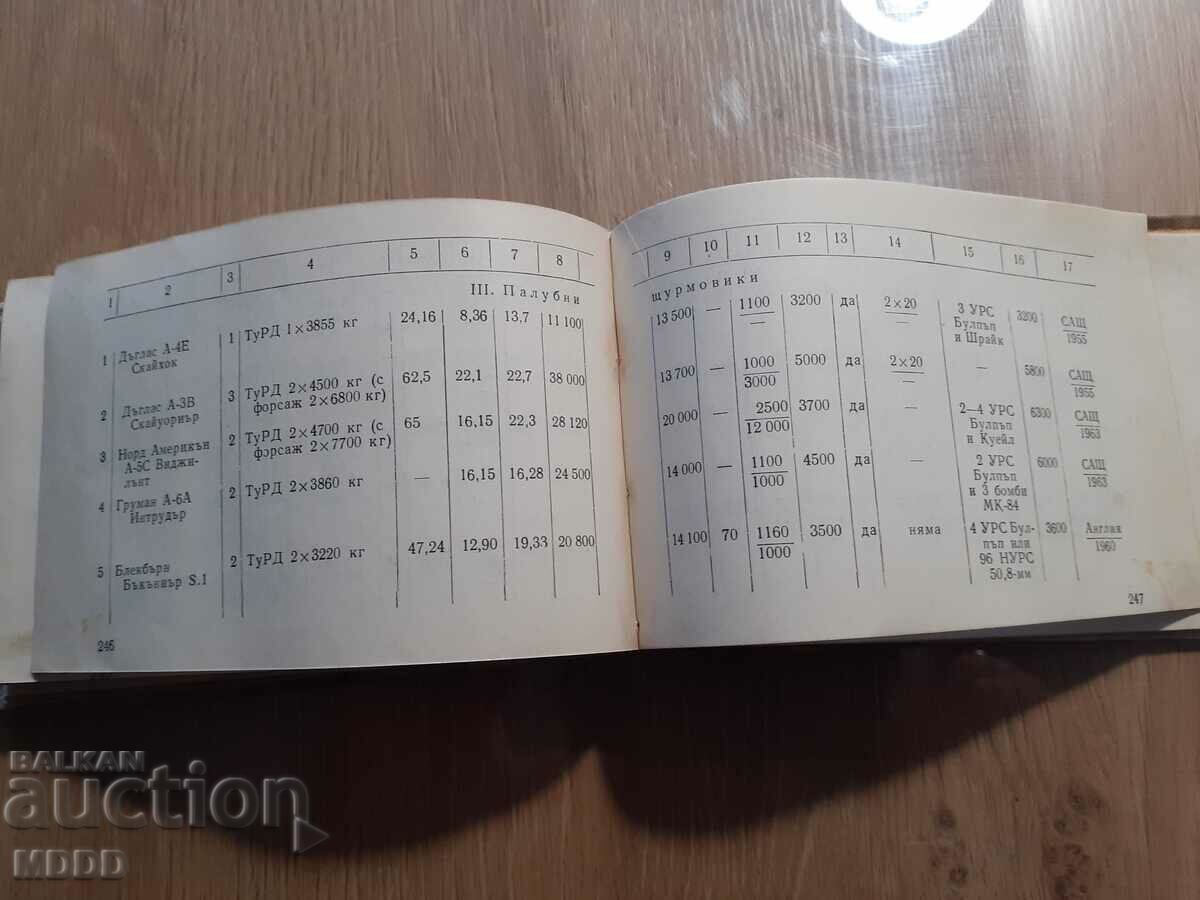 1 2 3 4 5 6 7 8
III. Палубни
1 Дъглас А-4Е 1 ТуРД 1×3855 кг 24,16 8,36 13,7 11 100
Скайхок
2 Дъглас А-3В 3 ТуРД 2×4500 кг (с 62,5 22,1 22,7 38 000
Скайуориър форсаж 2×6800 кг)
3 Норд Америкън 2 ТуРД 2×4700 кг (с 65 16,15 22,3 28 120
А-5С Виджи- форсаж 2×7700 кг)
лънт
4 Груман А-6А 2 ТуРД 2×3860 кг — 16,15 16,28 24 500
Интрудър
5 Блекбърн 2 ТуРД 2×3220 кг 47,24 12,90 19,33 20 800
Бъкъниър S.1
246
9 10 11 12 13 14 15 16 17
щурмовики
13 500 — 1100 3200 да 2×20 3 УРС 3200 САЩ
— — Булпъп 1955
и Шрайк
13 700 — 1000 5000 да 2×20 — 5800 САЩ
3000 — 1955
20 000 — 2500 3700 да — 2—4 УРС 6300 САЩ
12 000 Булпъп 1963
и Куейл
14 000 — 1100 4500 да — 2 УРС 6000 САЩ
1000 Булпъп 1963
и 3 бомби
МК-84
14 100 70 1160 3500 да няма 4 УРС Бул- 3600 Англия
1000 пъп или 1960
96 НУРС
50,8-мм
247
BALKAN
auction
MDDD